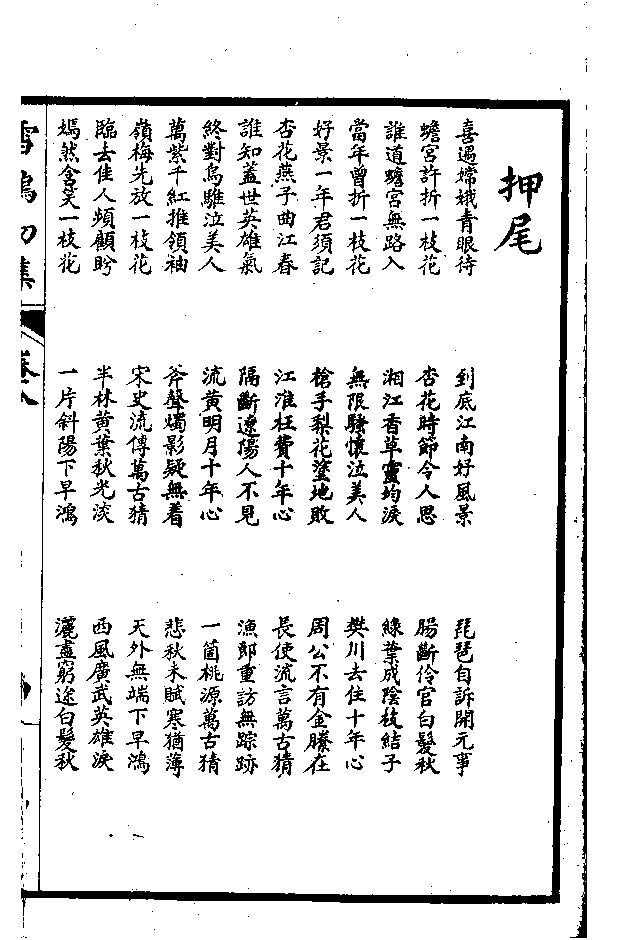 押尾
喜遇嫦娥青眼待
蟾宮許折一枝花
誰道蟾宮無路入
當年曾折一枝花
好景一年君須記
杏花燕子曲江春
誰知蓋世英雄氣
終對烏騅泣美人
萬紫千紅推領袖
嶺梅先放一枝花
臨去佳人頻顧盻
嫣然含笑一枝花
到底江南好風景
杏花時節令人思
湘江香草靈均淚
無限騷懷泣美人
槍手梨花塗地敗
江淮枉費十年心
隔斷遼陽人不見
流黃明月十年心
斧聲燭影疑無着
宋史流傳萬古猜
半林黃葉秋光淡
一片斜陽下早鴻
琵琶自訴開元事
腸斷伶官白髮秋
綠葉成陰枝結子
樊川去住十年心
周公不有金縢在
長使流言萬古猜
漁郎重訪無踪跡
一箇桃源萬古猜
悲秋未賦寒猶薄
天外無端下早鴻
西風廣武英雄淚
灑盡窮途白髮秋
雪鴻初集
卷八